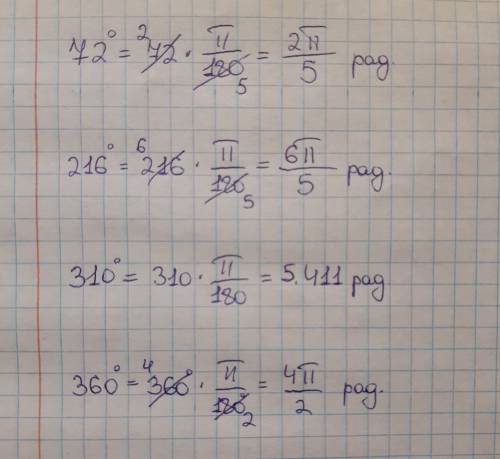 72° = ²72 · π/180 5 = 2π/5 рад.
216° = ⁶216 · π/180 5 = 6π/5 рад.
310° = 310 · π/180 = 5.411 рад
360° = ⁴360° · π/180 2 = 4π/2 рад.